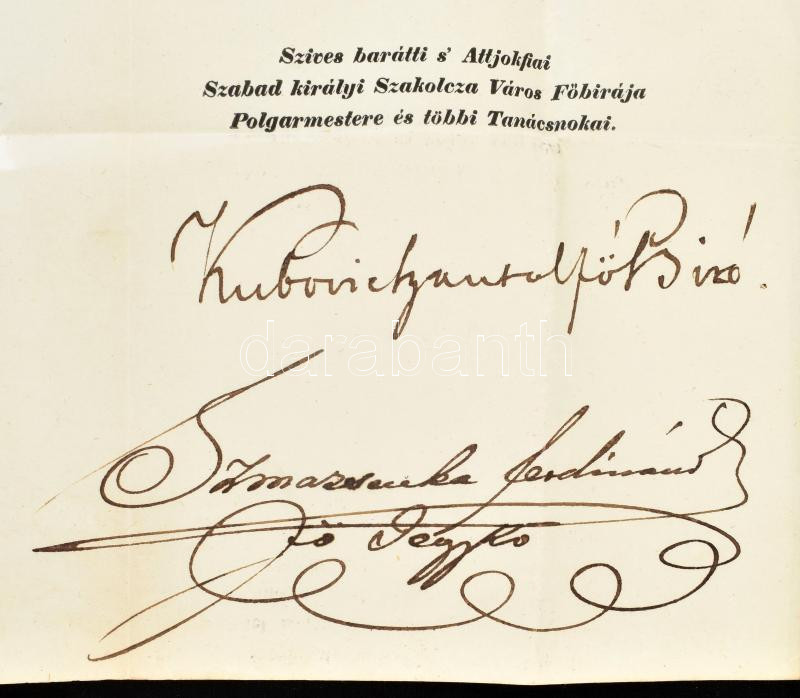 Szives barátti s' Attjokfiai
Szabad királyi Szakolcza Város Főbirája
Polgarmestere és többi Tanácsnokai.
Kubovich Antal fő Biró.
darabanth
Szmazsenka Ferdinánd
fő Jegyző